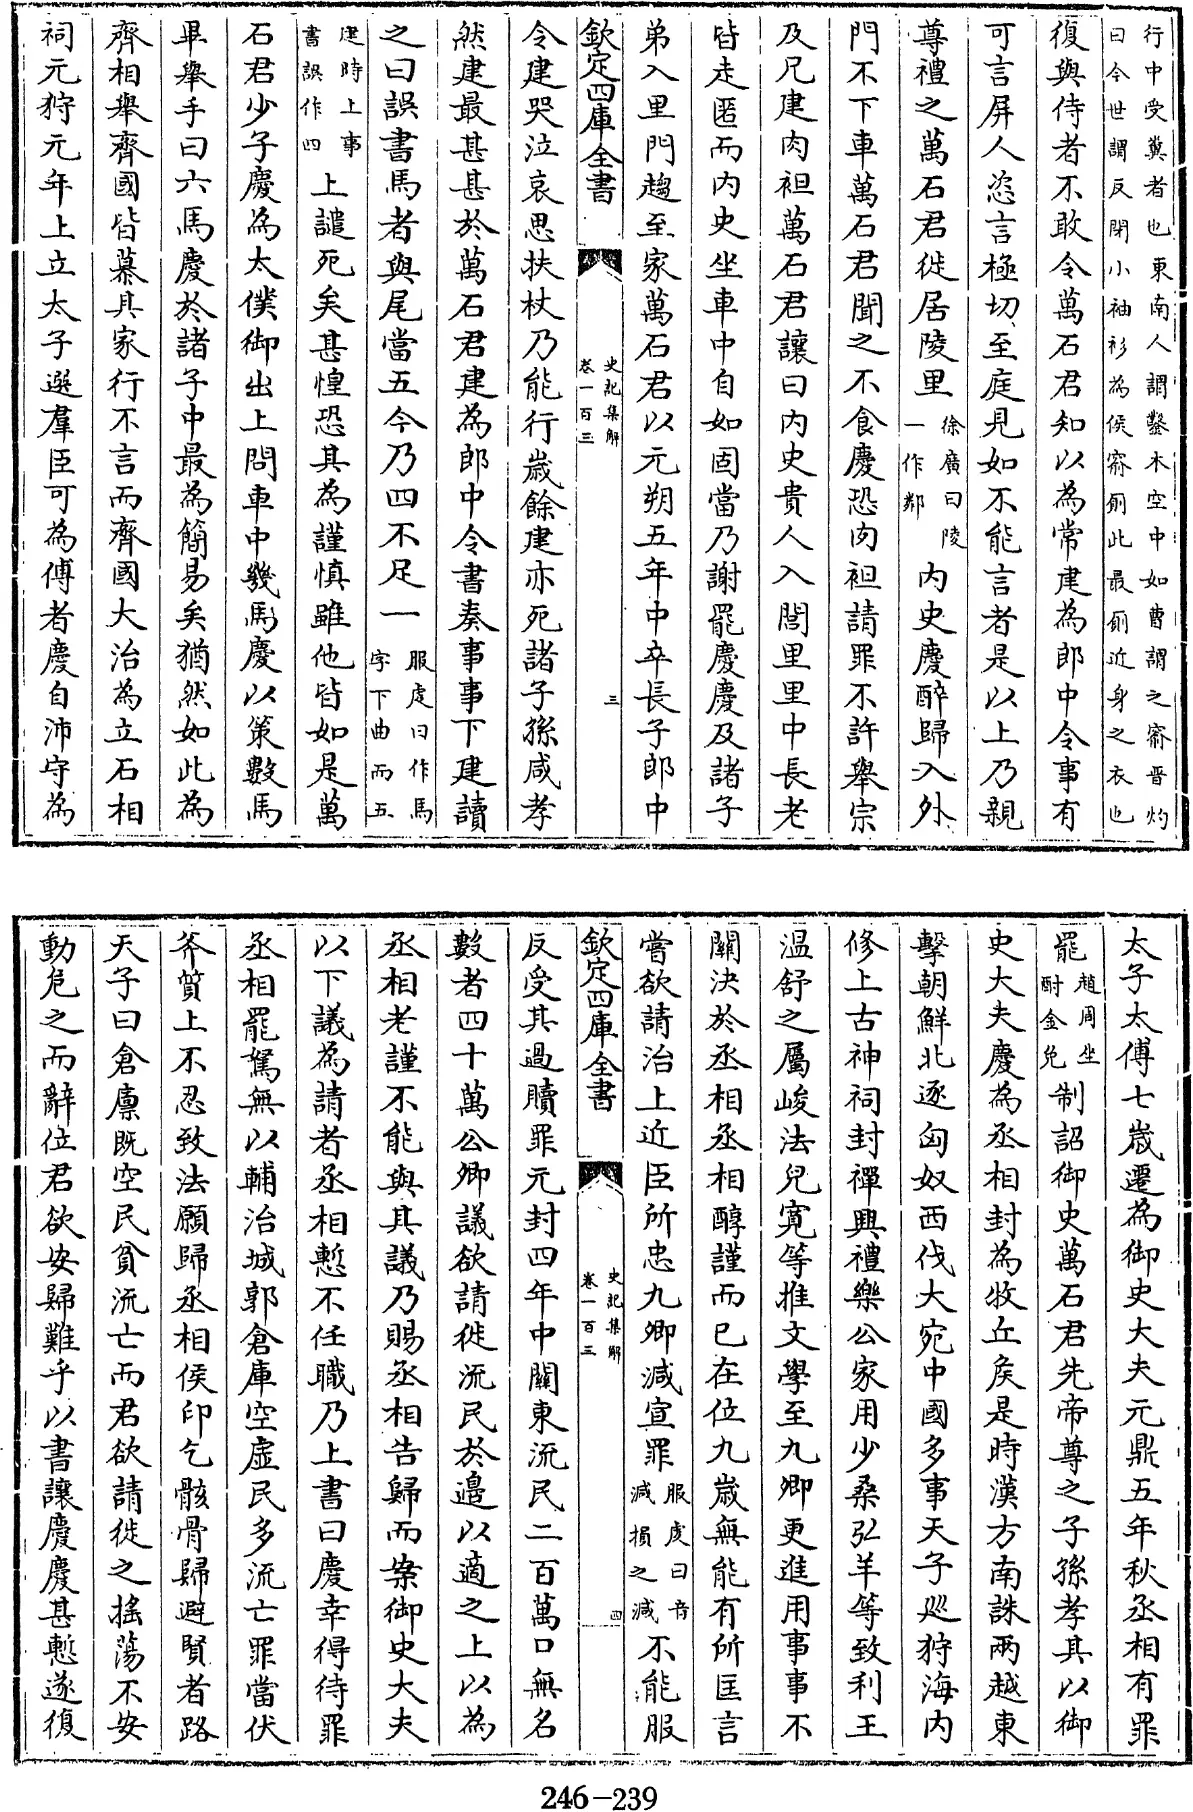 行中受糞者也東南人謂鑿木空中如曹謂之窬晋灼
曰今世謂反閉小袖衫為侯窬厠此最厠近身之衣也
復與侍者不敢令萬石君知以為常建為郎中令事有
可言屏人恣言極切至庭見如不能言者是以上乃親
尊禮之萬石君徙居陵里
徐廣曰陵
一作鄰
内史慶醉歸入外
門不下車萬石君聞之不食慶恐肉袒請罪不許舉宗
及兄建肉袒萬石君讓曰内史貴人入閭里里中長老
皆走匿而内史坐車中自如固當乃謝罷慶慶及諸子
弟入里門趨至家萬石君以元朔五年中卒長子郎中
欽定四庫全書
史記集解
卷一百三
三
令建哭泣哀思扶杖乃能行歲餘建亦死諸子孫咸孝
然建最甚甚於萬石君建為郎中令書奏事事下建讀
之曰誤書馬者與尾當五今乃四不足一
服虔曰作馬
字下曲而五
建時上事
書誤作四
上譴死矣甚惶恐其為謹慎雖他皆如是萬
石君少子慶為太僕御出上問車中幾馬慶以策數馬
畢舉手曰六馬慶於諸子中最為簡易矣猶然如此為
齊相舉齊國皆慕其家行不言而齊國大治為立石相
祠元狩元年上立太子選羣臣可為傅者慶自沛守為
太子太傅七歲遷為御史大夫元鼎五年秋丞相有罪
罷
趙周坐
酎金免
制詔御史萬石君先帝尊之子孫孝其以御
史大夫慶為丞相封為牧丘矦是時漢方南誅兩越東
擊朝鮮北逐匈奴西伐大宛中國多事天子廵狩海内
修上古神祠封禪興禮樂公家用少桑弘羊等致利王
温舒之屬峻法兒寛等推文學至九卿更進用事事不
關決於丞相丞相醇謹而已在位九歲無能有所匡言
嘗欲請治上近臣所忠九卿減宣罪
服虔曰音
減損之減
不能服
欽定四庫全書
史記集解
卷一百三
四
反受其過贖罪元封四年中關東流民二百萬口無名
數者四十萬公卿議欲請徙流民於邊以適之上以為
丞相老謹不能與其議乃賜丞相告歸而案御史大夫
以下議為請者丞相慙不任職乃上書曰慶幸得待罪
丞相罷駑無以輔治城郭倉庫空虚民多流亡罪當伏
斧質上不忍致法願歸丞相侯印乞骸骨歸避賢者路
天子曰倉廩既空民貧流亡而君欲請徙之摇蕩不安
動危之而辭位君欲安歸難乎以書讓慶慶甚慙遂復
246-239